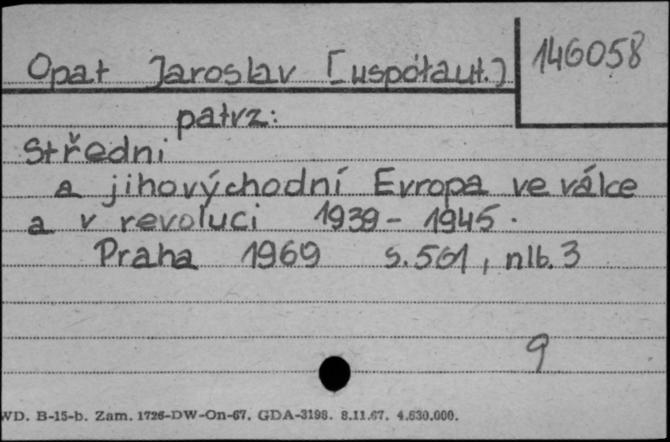 Opat Jaroslav [współaut.)
146058
patrz:
Střední
a jihovýchodní Evropa ve válce
a v revoluci 1939 - 1945.
Praha 1969 s. 561, nlb. 3
9
WD. B-15-b. Zam. 1726-DW-On-67. GDA-3198. 8.11.67. 4.630.000.